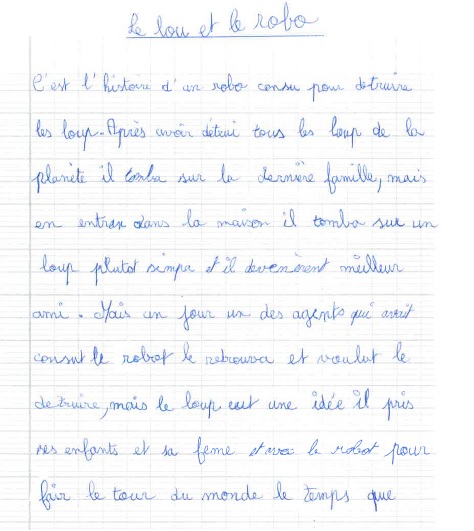 Le lou et le robo
C'est l'histoire d'un robo consu pour detruire
les loup. Après avoir détrui tous les loup de la
planète il tomba sur la dernière famille, mais
en entran dans la maison il tomba sur un
loup plutot simpa et il devenèrent meilleur
ami. Mais un jour un des agents qui avait
consut le robot le retrouva et voulut le
detruire, mais le loup eut une idée il pris
ses enfants et sa feme et le robot pour
fair le tour du monde le temps que